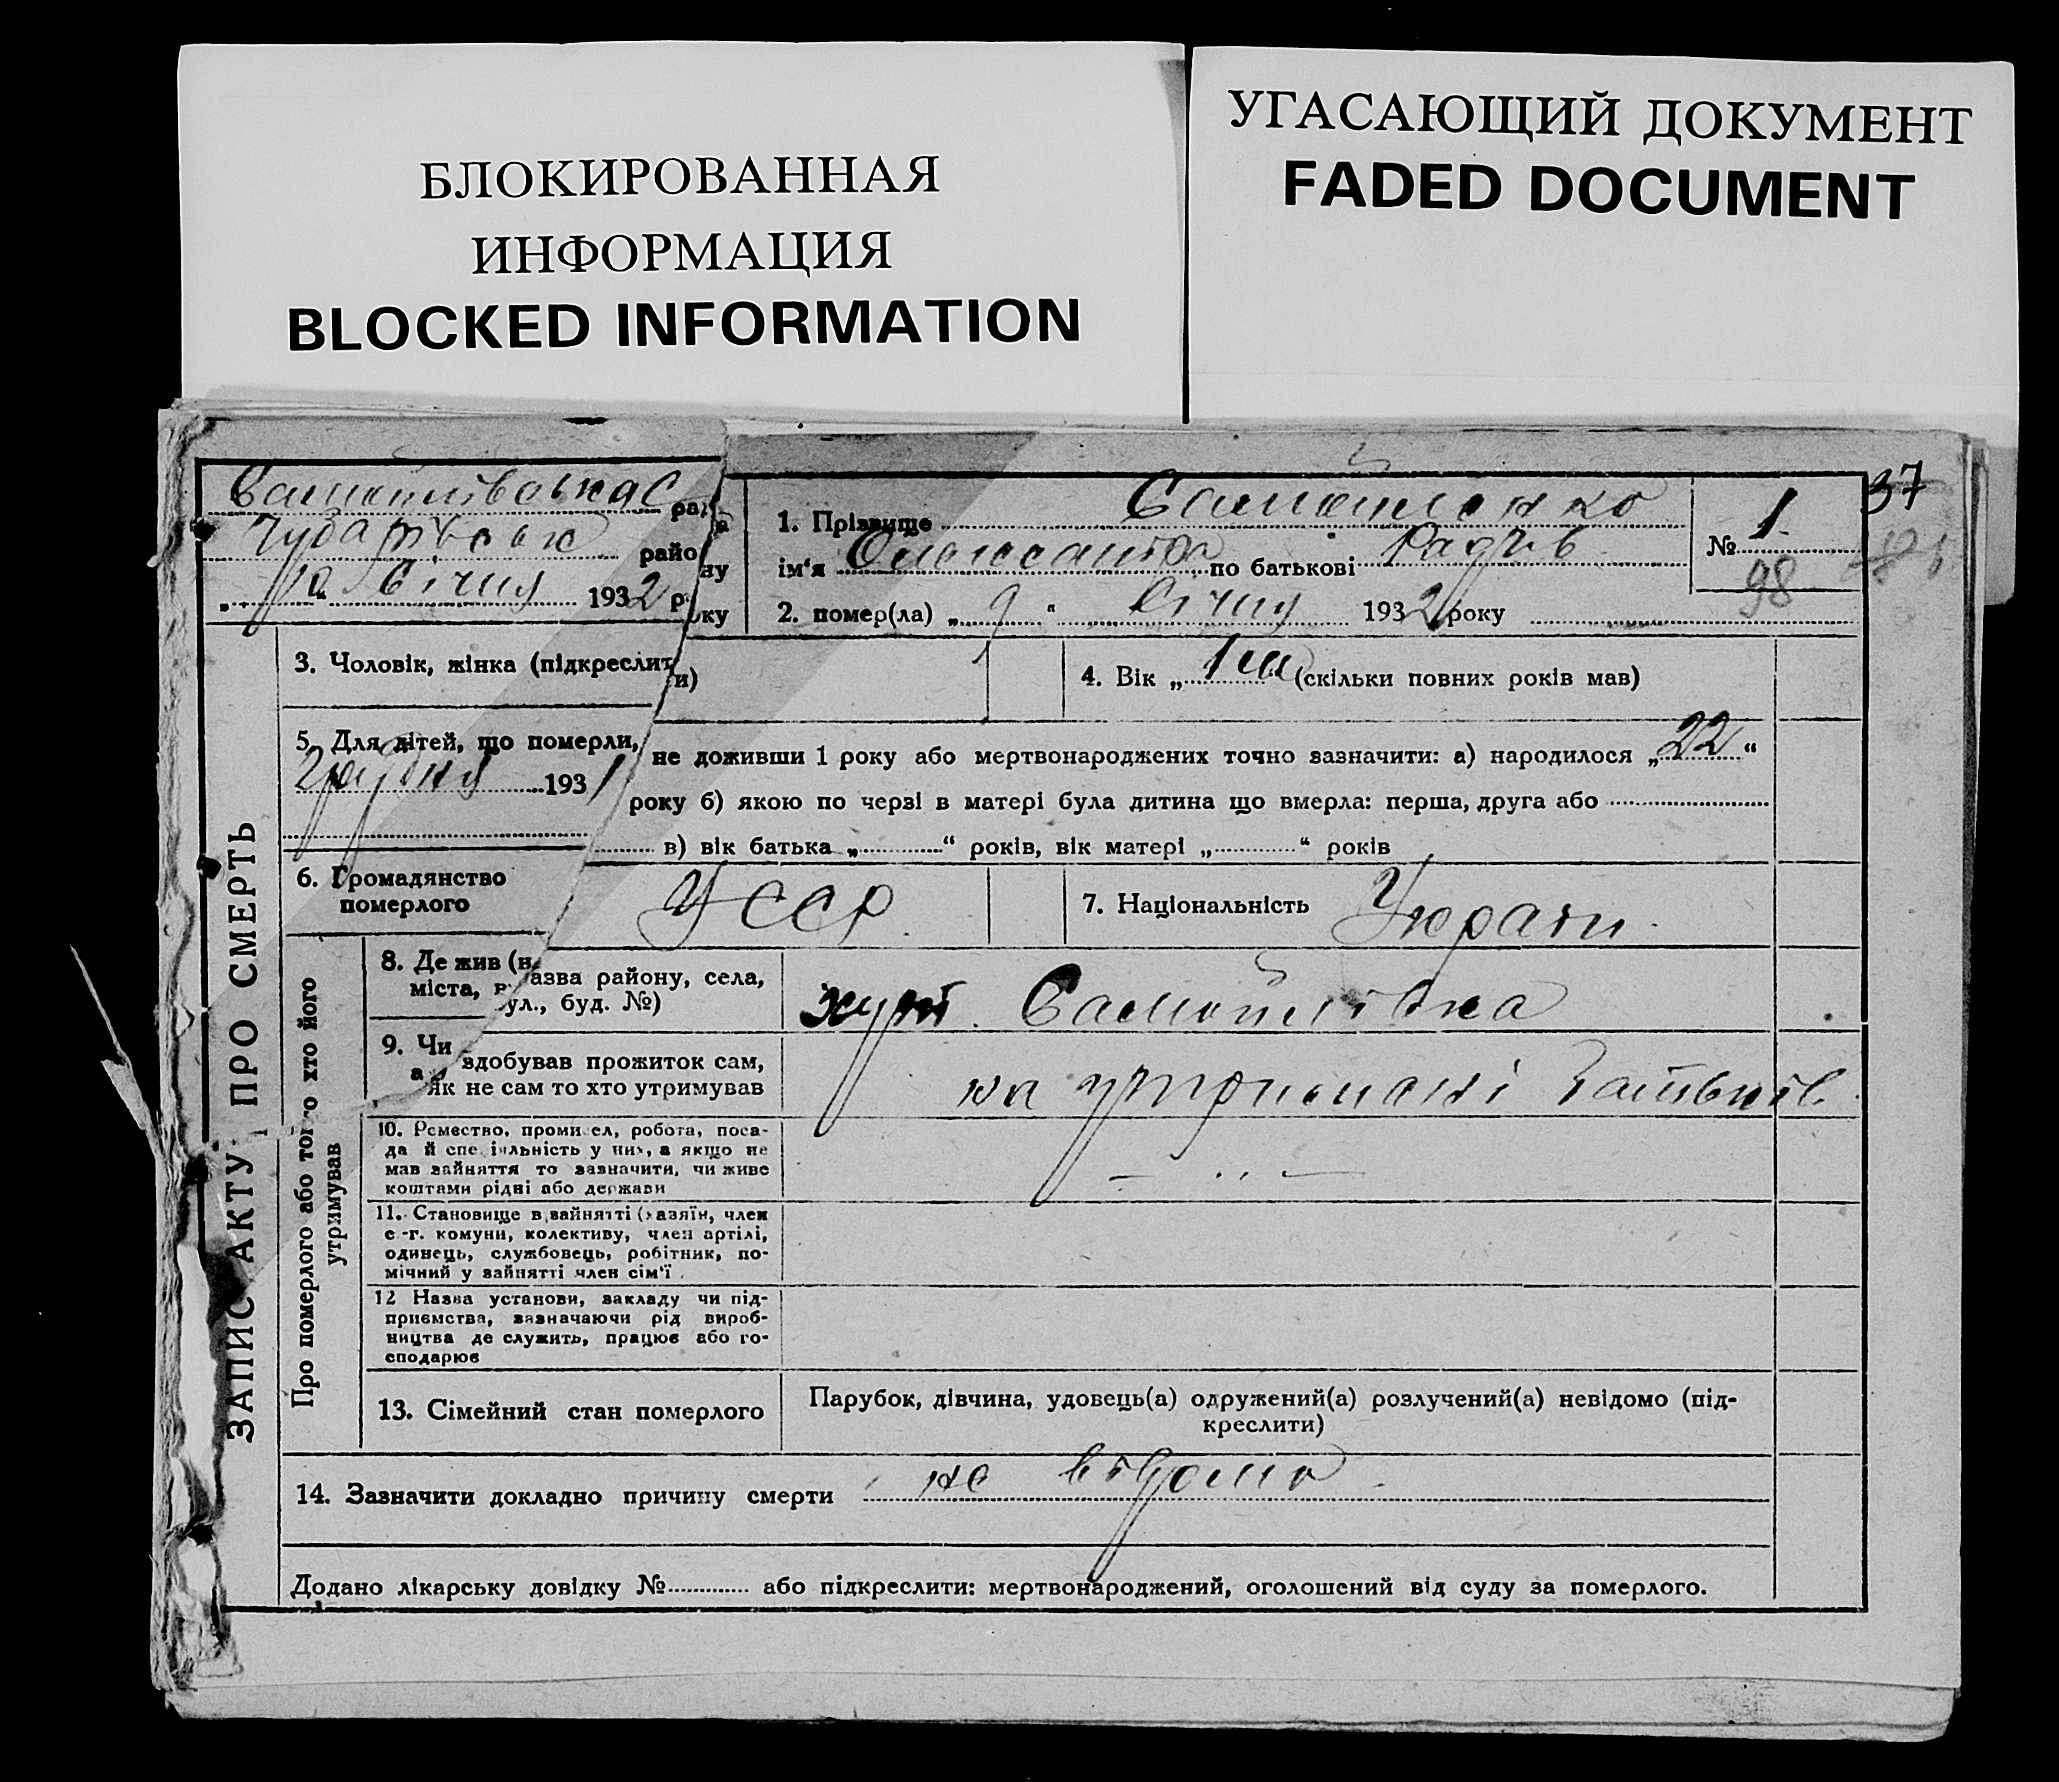 БЛОКИРОВАННАЯ
ИНФОРМАЦИЯ
BLOCKED INFORMATION
УГАСАЮЩИЙ ДОКУМЕНТ
FADED DOCUMENT
37
Самойлівська С рада
Чубарівськ району
„10“ Січня 1932 року
1. Прізвище Самойленко
ім'я по батькові
2. помер(ла) „9“ Січня 1932 року
№ 1
98
ЗАПИС АКТУ ПРО СМЕРТЬ
3. Чоловік, жінка (підкреслити)
4. Вік „1 м“ (скільки повних років мав)
5. Для дітей, що померли, не доживши 1 року або мертвонароджених точно зазначити: а) народилося „22“
Грудня 1931 року б) якою по черзі в матері була дитина що вмерла: перша, друга або
в) вік батька „ “ років, вік матері „ “ років
6. Громадянство
померлого
УССР
7. Національність Украін.
Про померлого або того хто його
утримував
8. Де жив (назва району, села,
міста, вул., буд. №)
хут. Самойлівка
9. Чи здобував прожиток сам,
а як не сам то хто утримував
на утриманні батьків.
10. Ремество, промисел, робота, поса-
да й спеціяльність у них, а якщо не
мав зайняття то зазначити, чи живе
коштами рідні або держави
— .. —
11. Становище в зайнятті (хазяїн, член
с.-г. комуни, колективу, член артілі,
одинець, службовець, робітник, по-
мічний у зайнятті член сім'ї
12 Назва установи, закладу чи під-
приємства, зазначаючи рід вироб-
ництва де служить, працює або го-
сподарює
13. Сімейний стан померлого
Парубок, дівчина, удовець(а) одружений(а) розлучений(а) невідомо (під-
креслити)
14. Зазначити докладно причину смерти не відома.
Додано лікарську довідку № або підкреслити: мертвонароджений, оголошений від суду за померлого.